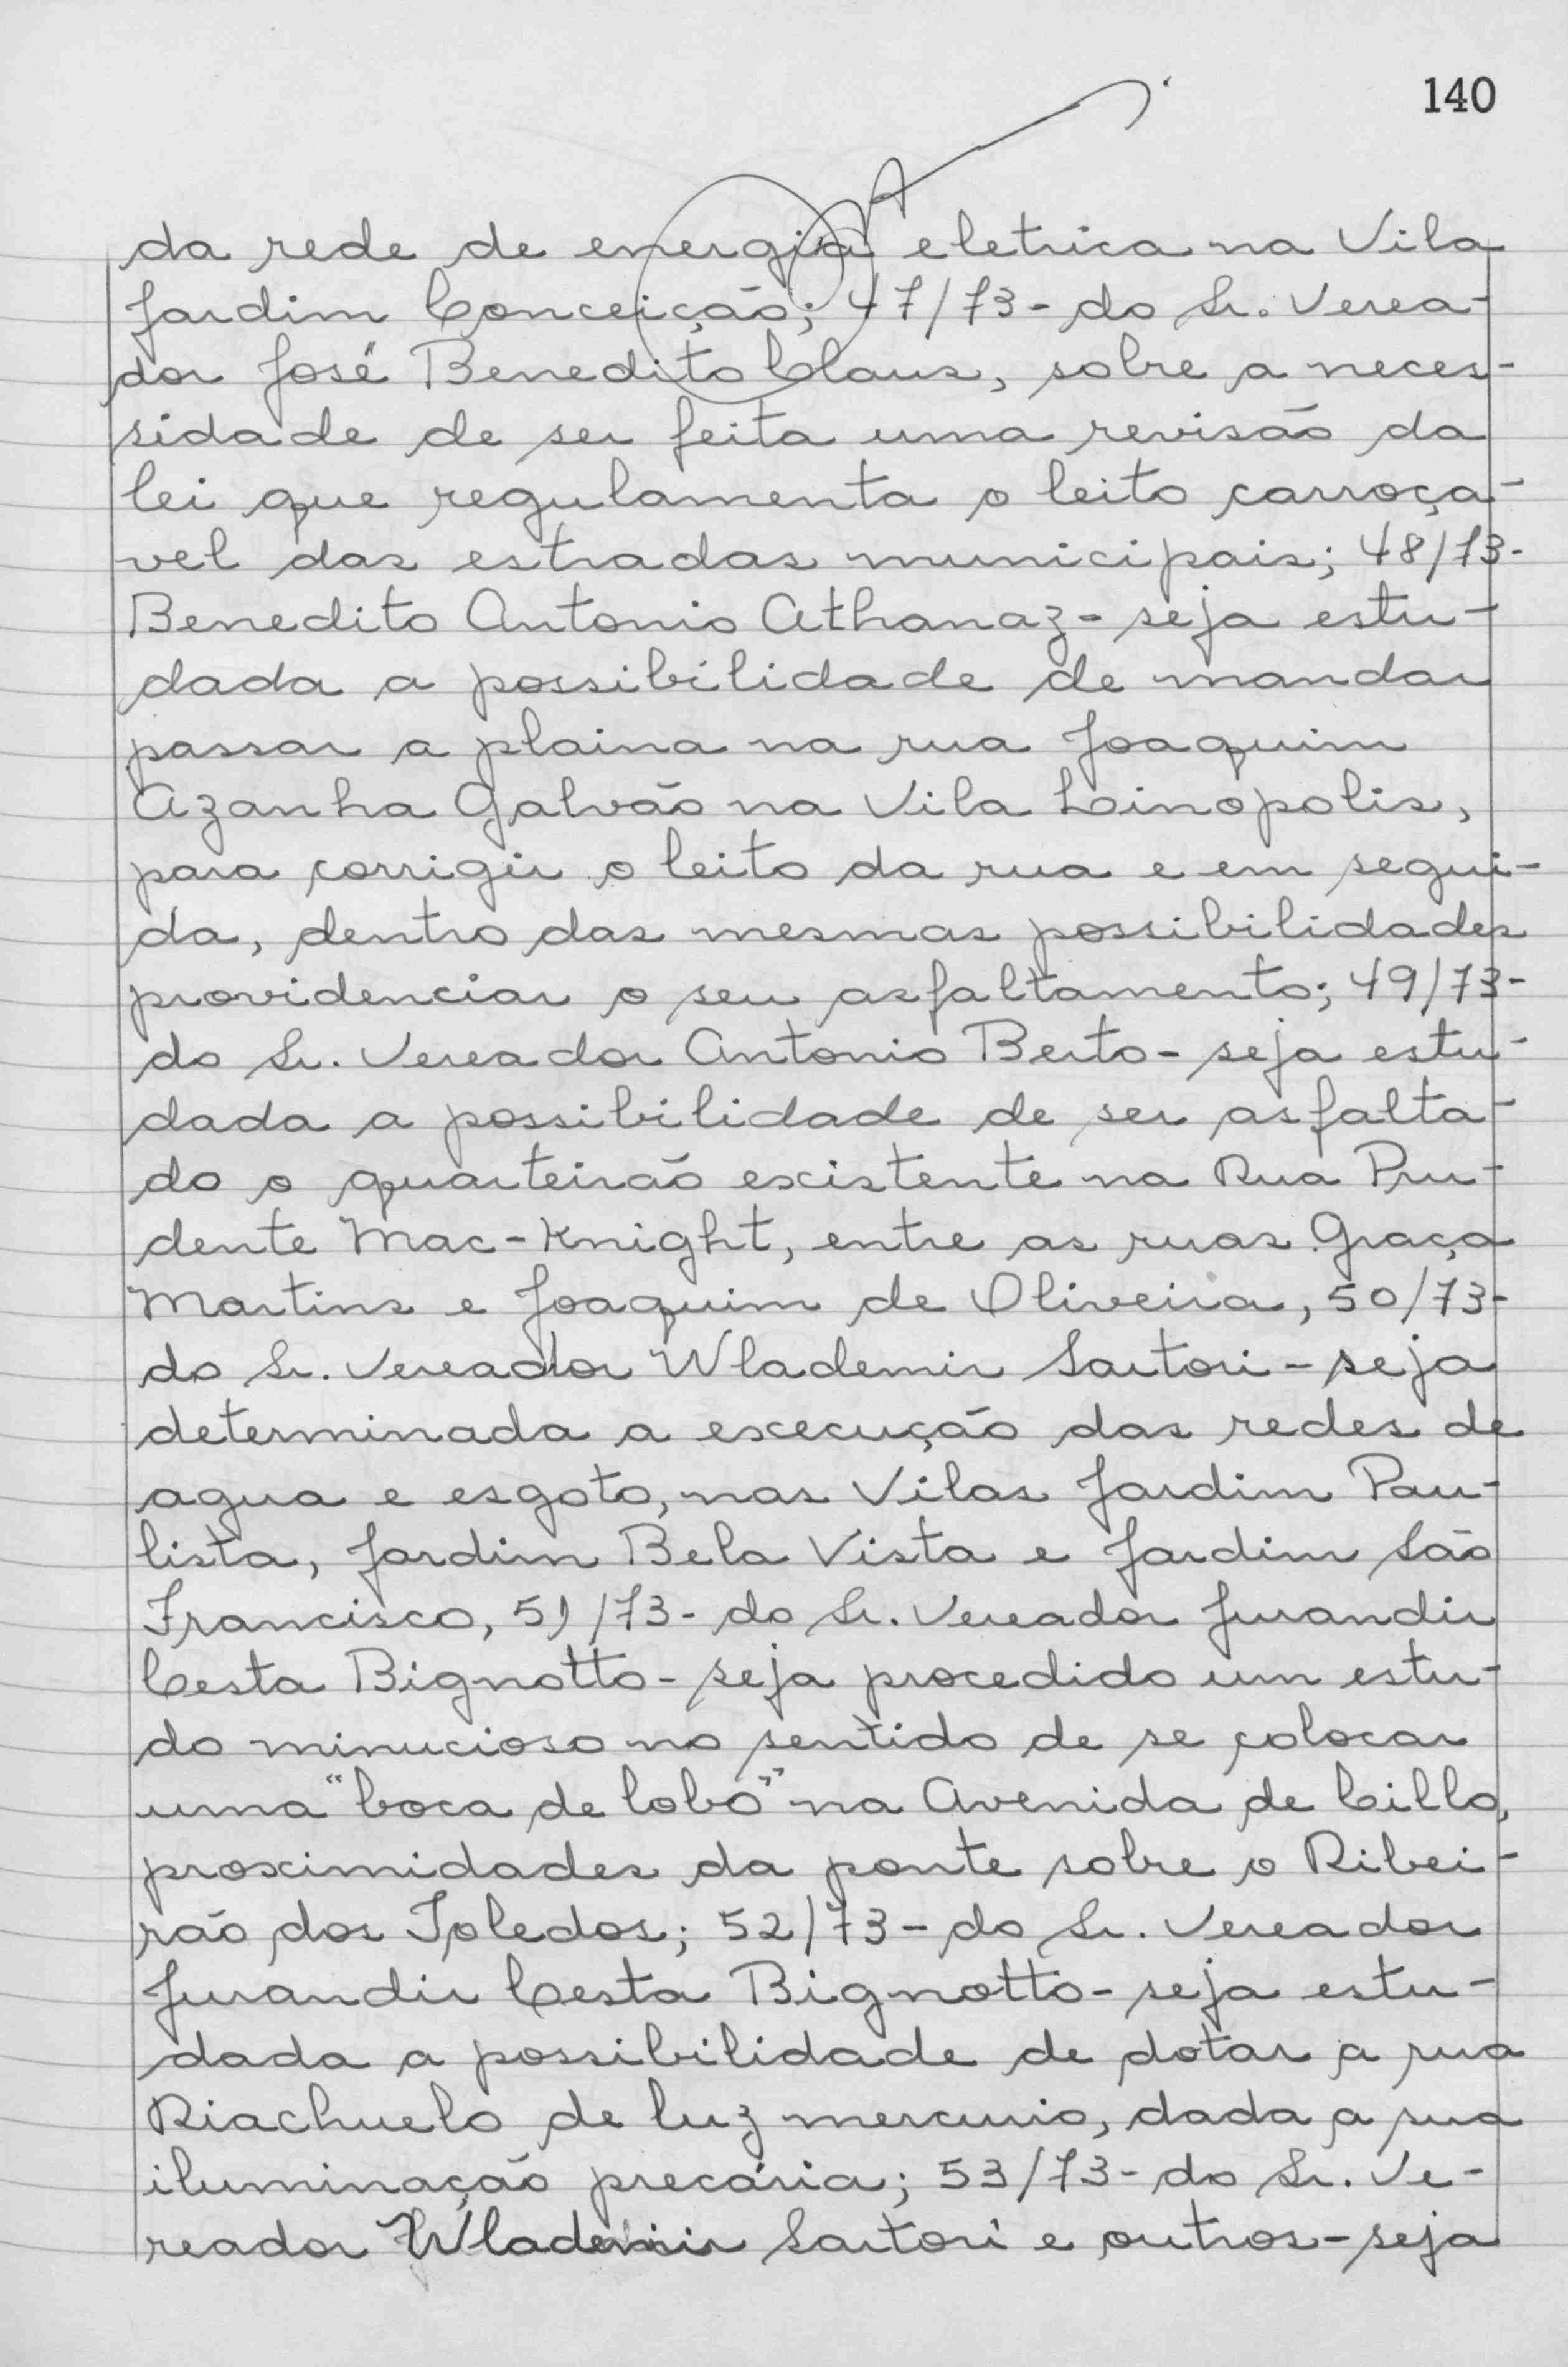 140
da rede de energia eletrica na Vila
Jardim Conceição; 47/73- do Sr. Verea-
dor José Benedito Claus, sobre a neces-
sidade de ser feita uma revisão da
lei que regulamenta o leito carroça-
vel das estradas municipais; 48/73-
Benedito Antonio Athanaz- seja estu-
dada a possibilidade de mandar
passar a plaina na rua Joaquim
Azanha Galvão na Vila Linopolis,
para corrigir o leito da rua e em segui-
da, dentro das mesmas possibilidades
providenciar o seu asfaltamento; 49/73-
do Sr. Vereador Antonio Berto- seja estu-
dada a possibilidade de ser asfalta-
do o quarteirão existente na Rua Pru-
dente Mac-Knight, entre as ruas Graça
Martins e Joaquim de Oliveira, 50/73-
do Sr. Vereador Wlademir Sartori- seja
determinada a execução das redes de
agua e esgoto, nas Vilas Jardim Pau-
lista, Jardim Bela Vista e Jardim São
Francisco, 51/73- do Sr. Vereador Jurandir
Cesta Bignotto- seja procedido um estu-
do minucioso no sentido de se colocar
uma "boca de lobo" na Avenida de Cillo,
proximidades da ponte sobre o Ribei-
rão dos Toledos; 52/73- do Sr. Vereador
Jurandir Cesta Bignotto- seja estu-
dada a possibilidade de dotar a rua
Riachuelo de luz mercurio, dada a sua
iluminação precária; 53/73- do Sr. Ve-
reador Wlademir Sartori e outros- seja